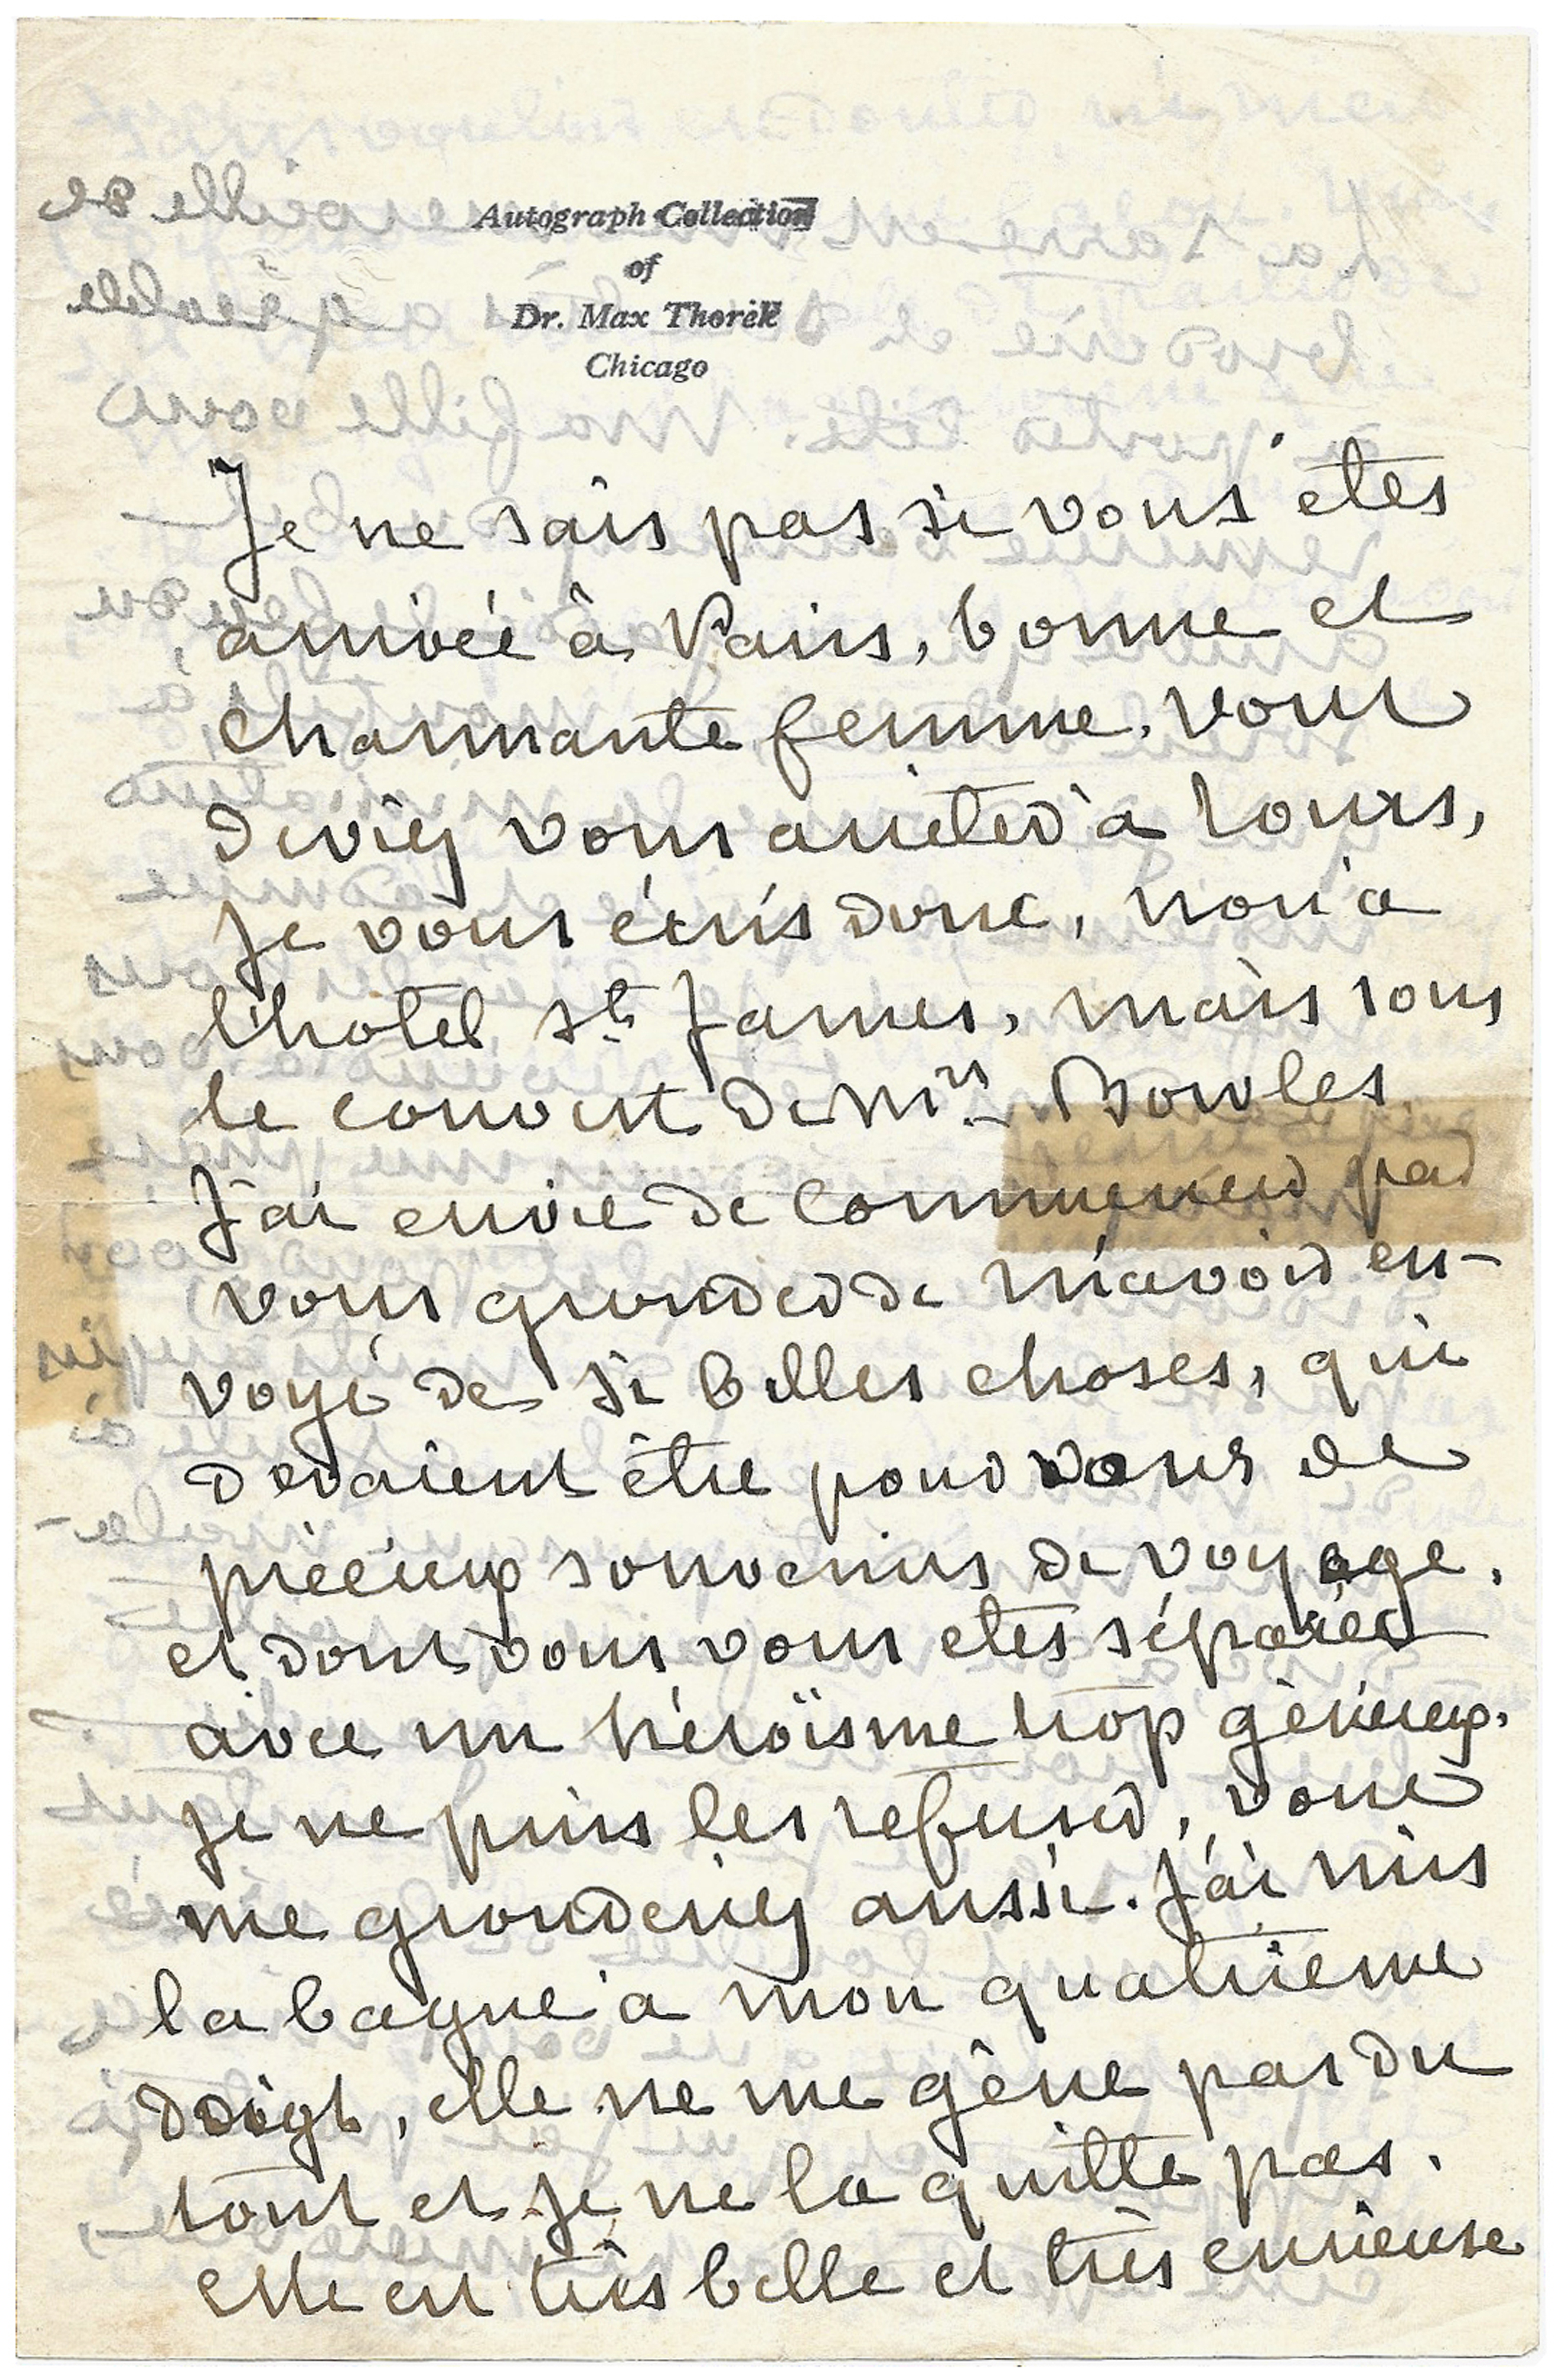 Autograph Collection
of
Dr. Max Thorek
Chicago
Je ne sais pas si vous êtes
arrivée à Paris, bonne et
charmante femme. Vous
deviez vous arrêter à Tours,
je vous écris donc, non à
l'hotel St James, mais sous
le couvert de Mrs Bowles
J'ai envie de commencer par
vous gronder de m'avoir en-
voyé de si belles choses, qui
devaient être pour vous de
précieux souvenirs de voyage,
et dont vous vous etes séparée
avec un héroïsme trop généreux.
je ne puis les refuser, vous
me gronderiez aussi. J'ai mis
la bague à mon quatrième
doigt, elle ne me gêne pas du
tout et je ne la quitte pas.
elle est très belle et très curieuse